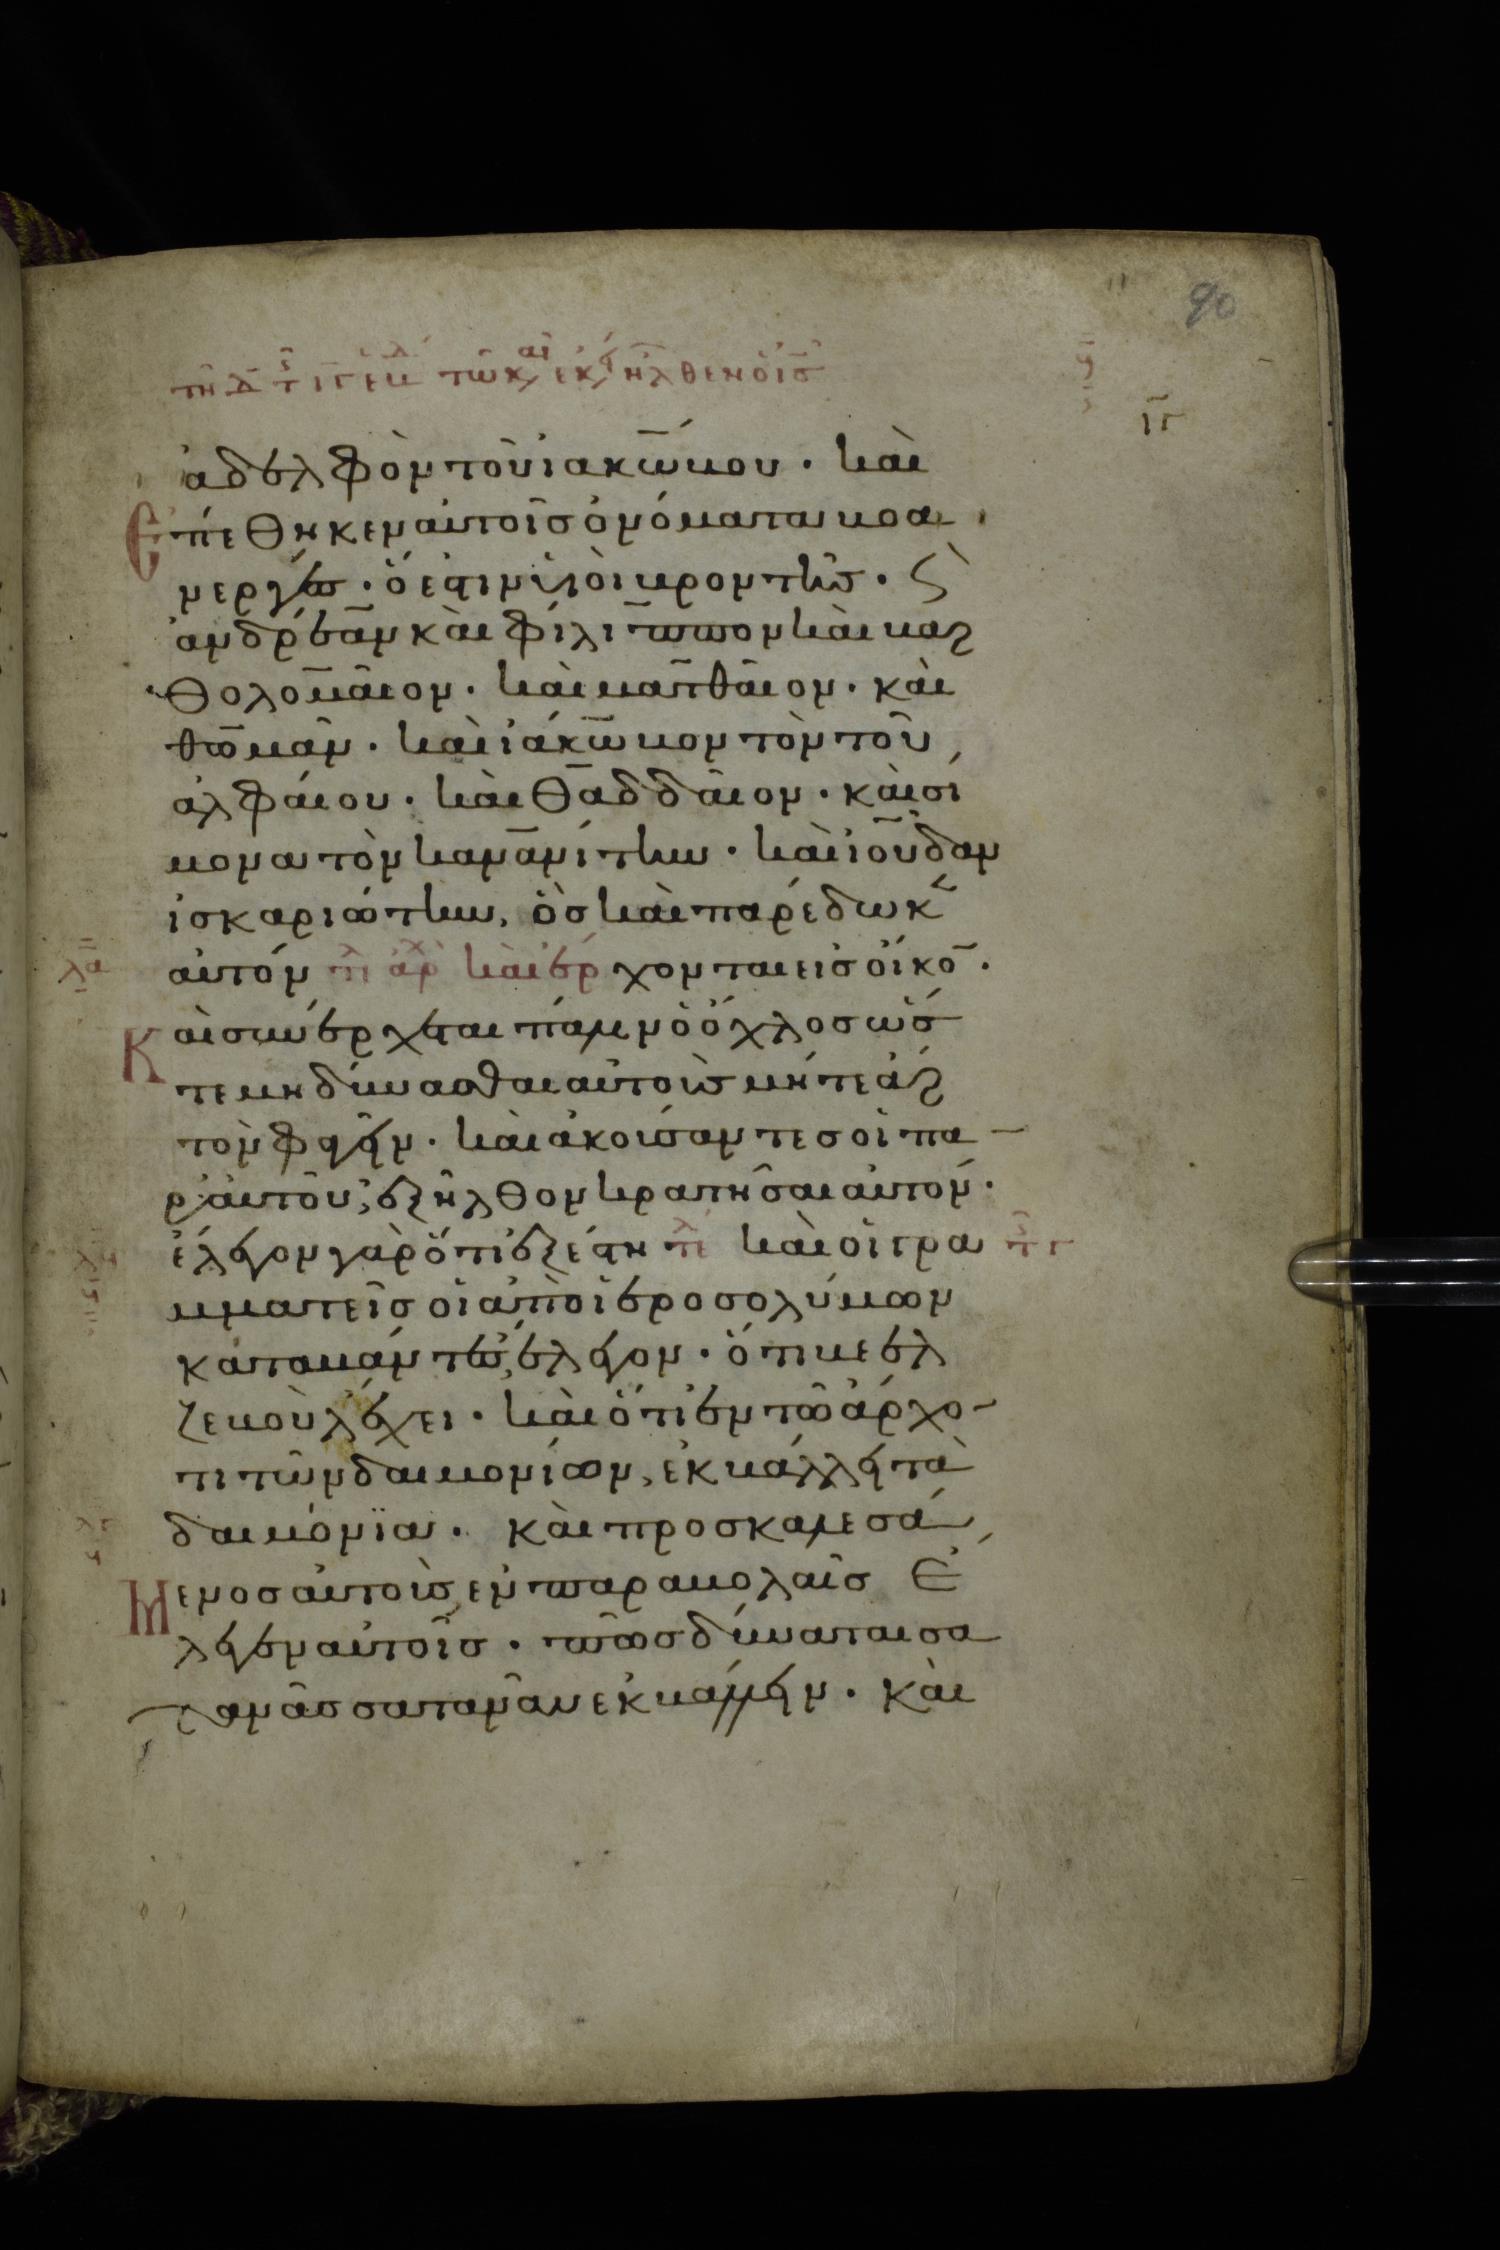 90
τη Δ τ ιγ εβ τω κ, εκ, ηλθεν ο ισ
ιγ
ἀδελφὸν τοῦ ἰακώβου · καὶ
Ἐπέθηκεν αὐτοῖσ ὀνόματα βοα
νεργέσ · ὅ ἐστιν υἱοὶ βροντῆσ · ϛ̀
ἀνδρέαν καὶ φίλιππον καὶ βαρ
θολομαῖον · καὶ ματθαῖον · καὶ
θωμᾶν · καὶ ἰάκωβον τὸν τοῦ
ἀλφαίου · καὶ θαδδαῖον · καὶ σί
μονα τὸν κανανίτην · καὶ ἰούδαν
ἰσκαριώτην, ὃσ καὶ παρέδωκε
αὐτόν τλ ἀρχ καὶ ἔρχονται εἰσ οἶκον ·
λα
Καὶ συνέρχεται πάλιν ὁ ὄχλοσ ὥσ
τε μὴ δύνασθαι αὐτοὺσ μήτε ἄρ
τον φαγεῖν · καὶ ἀκούσαντεσ οἱ πα
ρ' αὐτοῦ, ἐξῆλθον κρατῆσαι αὐτόν ·
ἔλεγον γὰρ ὅτι ἐξέστη τλ καὶ οἱ γρα τ γ
μματεῖσ οἱ ἀπὸ ἱεροσολύμων
καταβάντεσ, ἔλεγον · ὅτι βεελ
ζεβοὺλ ἔχει · καὶ ὅτι ἐν τῶ ἄρχο
τι τῶν δαιμονίων, ἐκβάλλει τὰ
δαιμόνϊα · καὶ προσκαλεσά
Μενοσ αὐτοὺσ, ἐν παραβολαῖσ Ἐ
λεγεν αὐτοῖσ · πῶσ δύναται σα
τανᾶσ σατανᾶν ἐκβάλλειν · καὶ